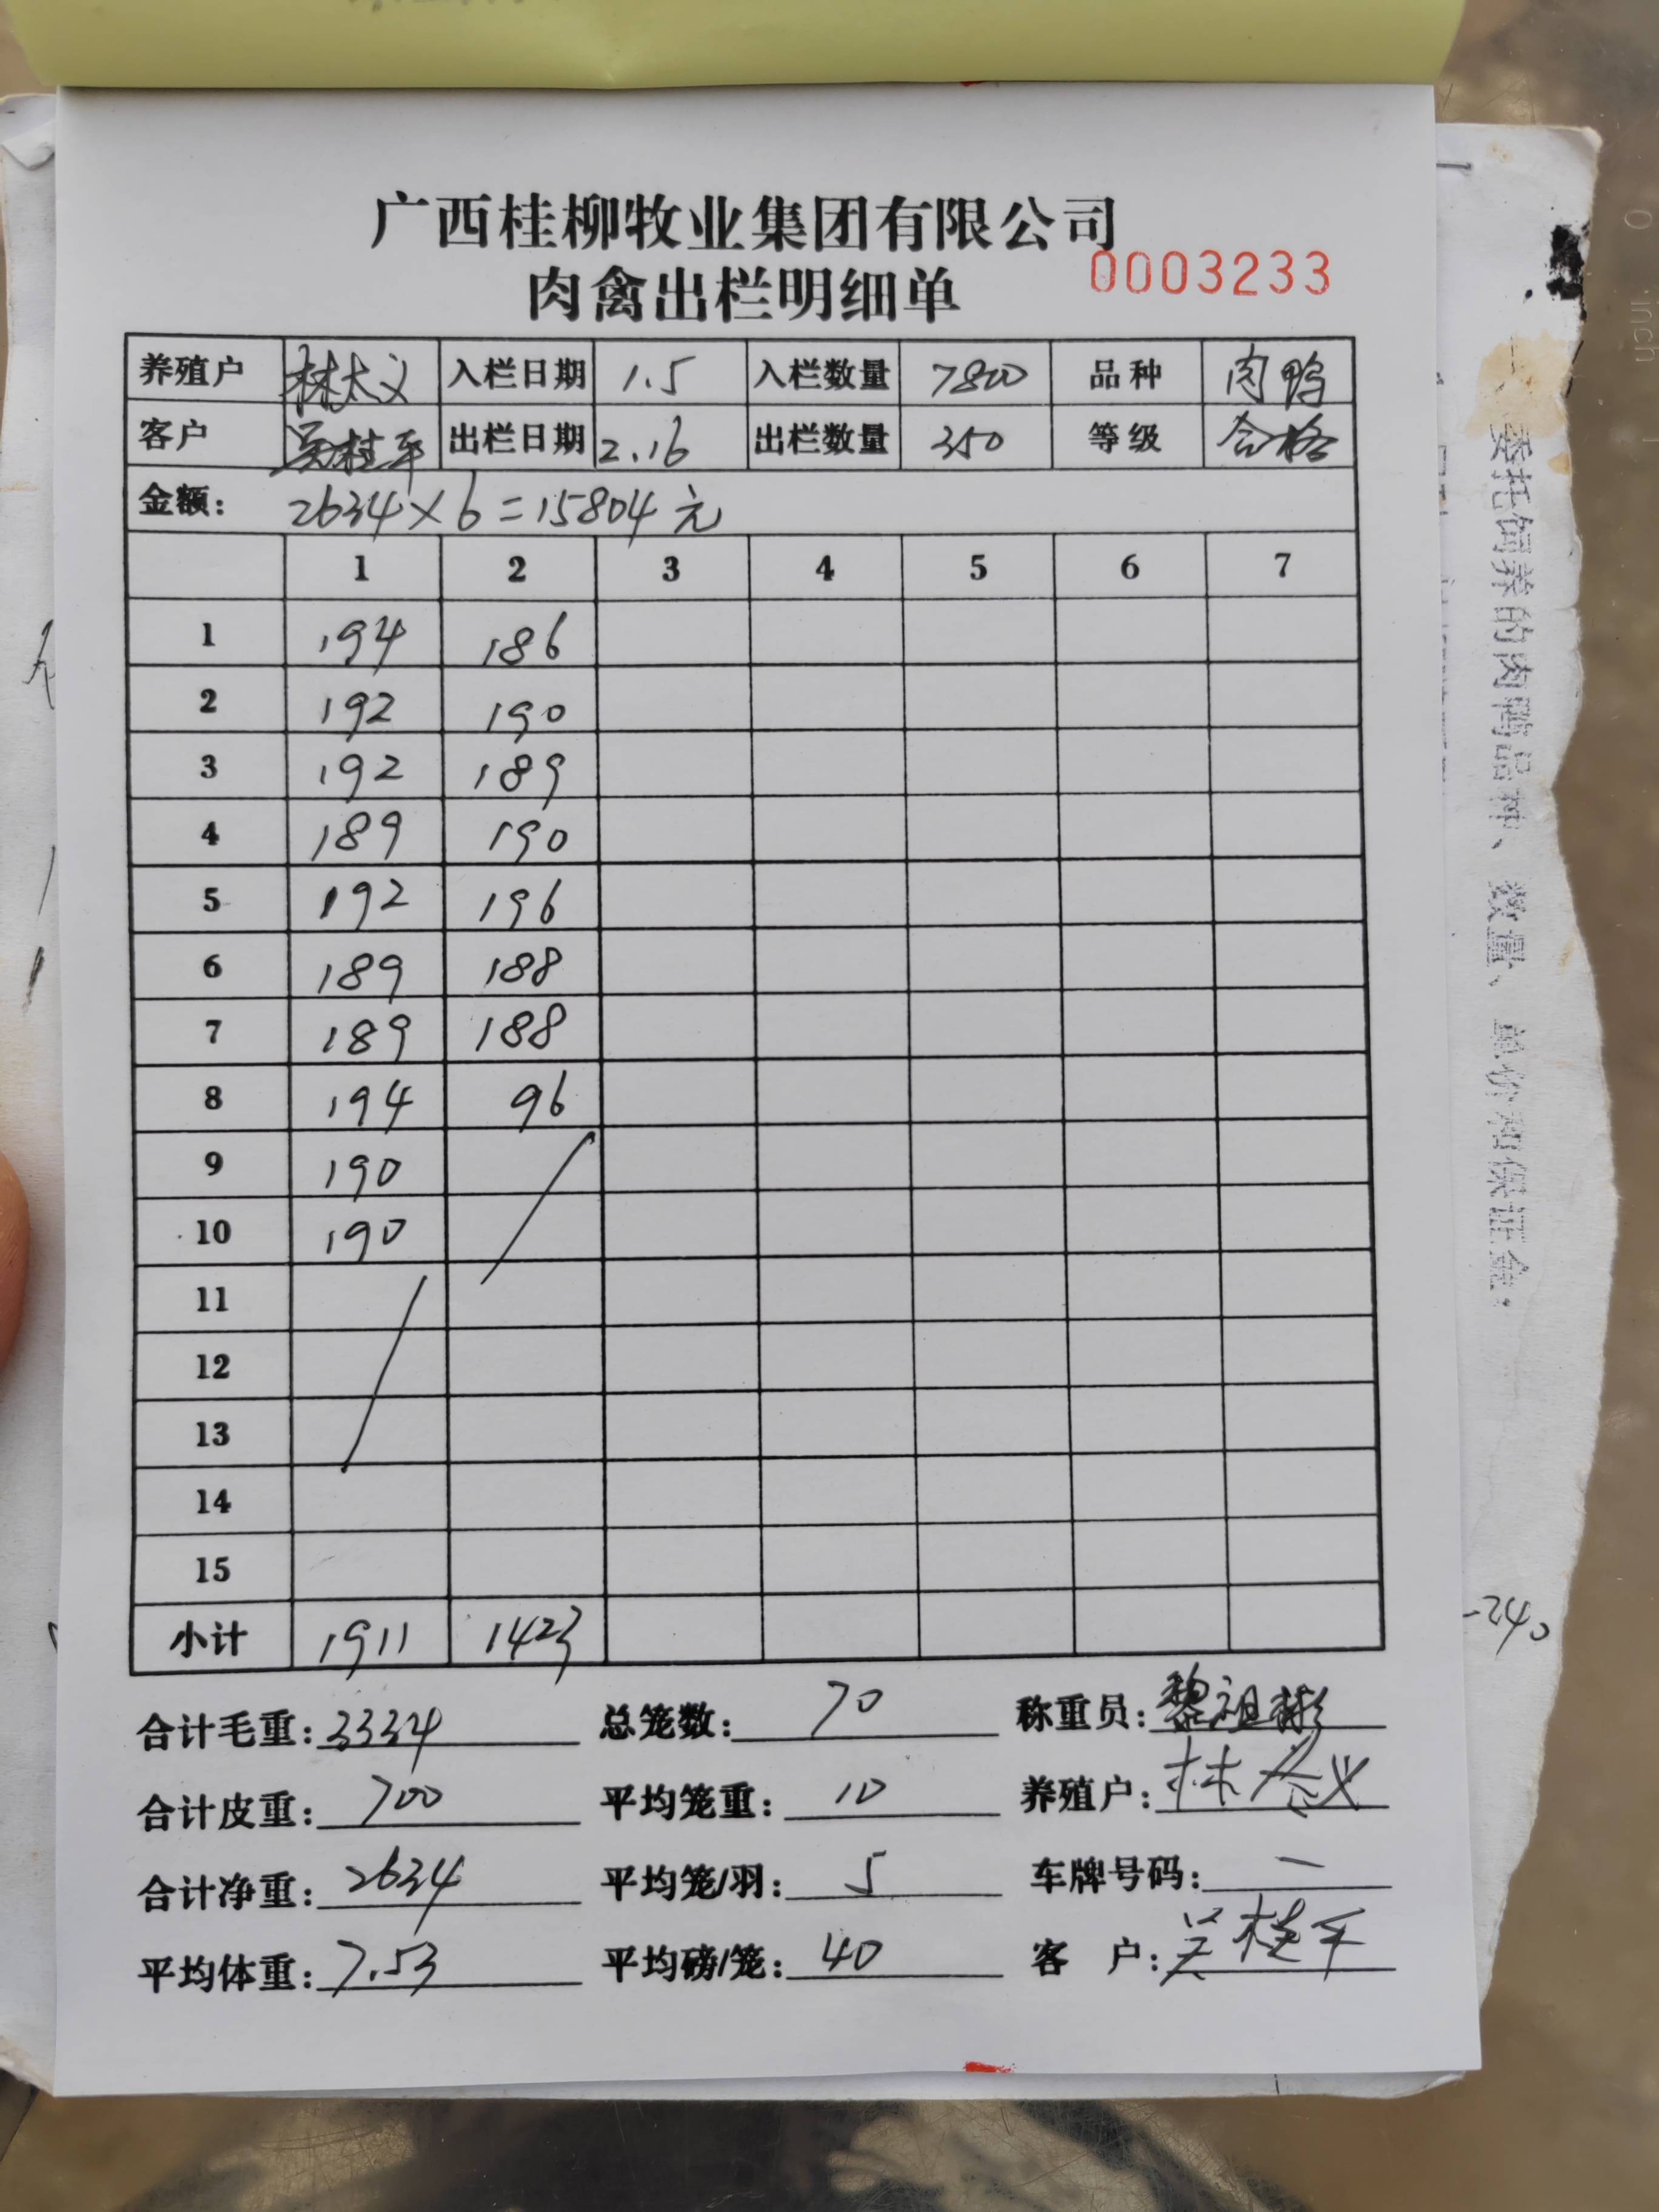 广西桂柳牧业集团有限公司
肉禽出栏明细单 0003233
养殖户 林太义 入栏日期 1.5 入栏数量 7800 品种 肉鸭
客户 吴桂平 出栏日期 2.16 出栏数量 350 等级 合格
金额: 2634×6=15804元
1 2 3 4 5 6 7
1 194 186
2 192 190
3 192 189
4 189 190
5 192 196
6 189 188
7 189 188
8 194 96
9 190
10 190
11
12
13
14
15
小计 1911 1423
合计毛重: 3334 总笼数: 70 称重员: 黎祖彬
合计皮重: 700 平均笼重: 10 养殖户: 林太义
合计净重: 2634 平均笼/羽: 5 车牌号码: 一
平均体重: 7.53 平均磅/笼: 40 客 户: 吴桂平
委托饲养的肉鸭品种、数量、单价和保证金:
-240
0 inch 1